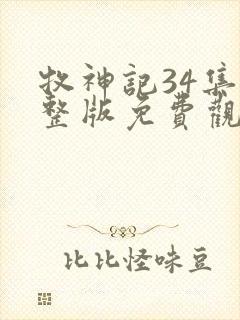 牧神記34集
整版免費觀
比比怪味豆